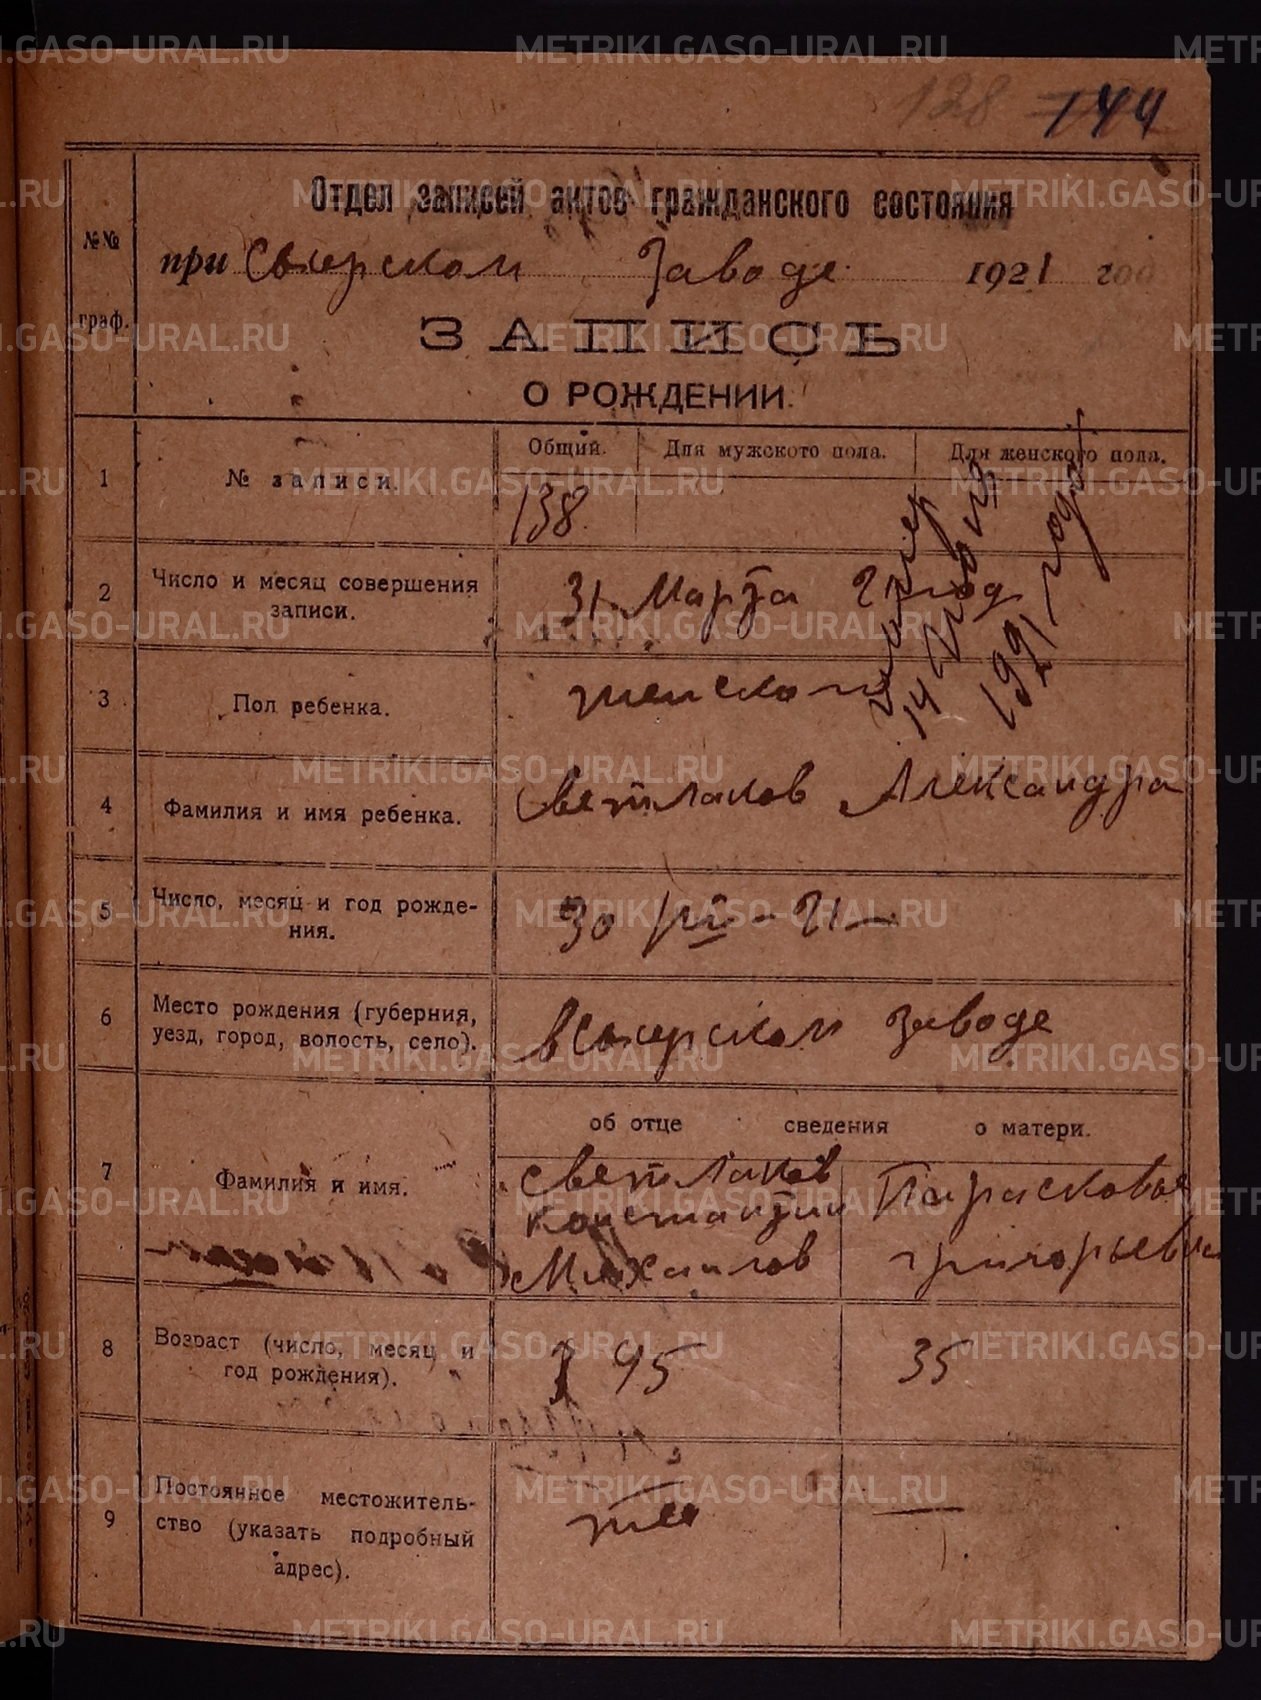 128 144
№№ граф.
Отдел записей актов гражданского состояния
при Сысерском Заводе 1921 год
ЗАПИСЬ
О РОЖДЕНИИ.
1 № записи. Общий. Для мужского пола. Для женского пола.
138
умер
14 июня
1921 года
2 Число и месяц совершения
записи.
31 Марта 21 год
3 Пол ребенка. женской
4 Фамилия и имя ребенка. Светлаков Александра
5 Число, месяц и год рожде-
ния.
30 III - 21 —
6 Место рождения (губерния,
уезд, город, волость, село).
в Сысерском заводе
об отце сведения о матери.
7 Фамилия и имя.
Светлаков Парасковья
Константин
Михайлов григорьевна
8 Возраст (число, месяц и
год рождения).
45 35
9 Постоянное местожитель-
ство (указать подробный
адрес).
тоо —
METRIKI.GASO-URAL.RU